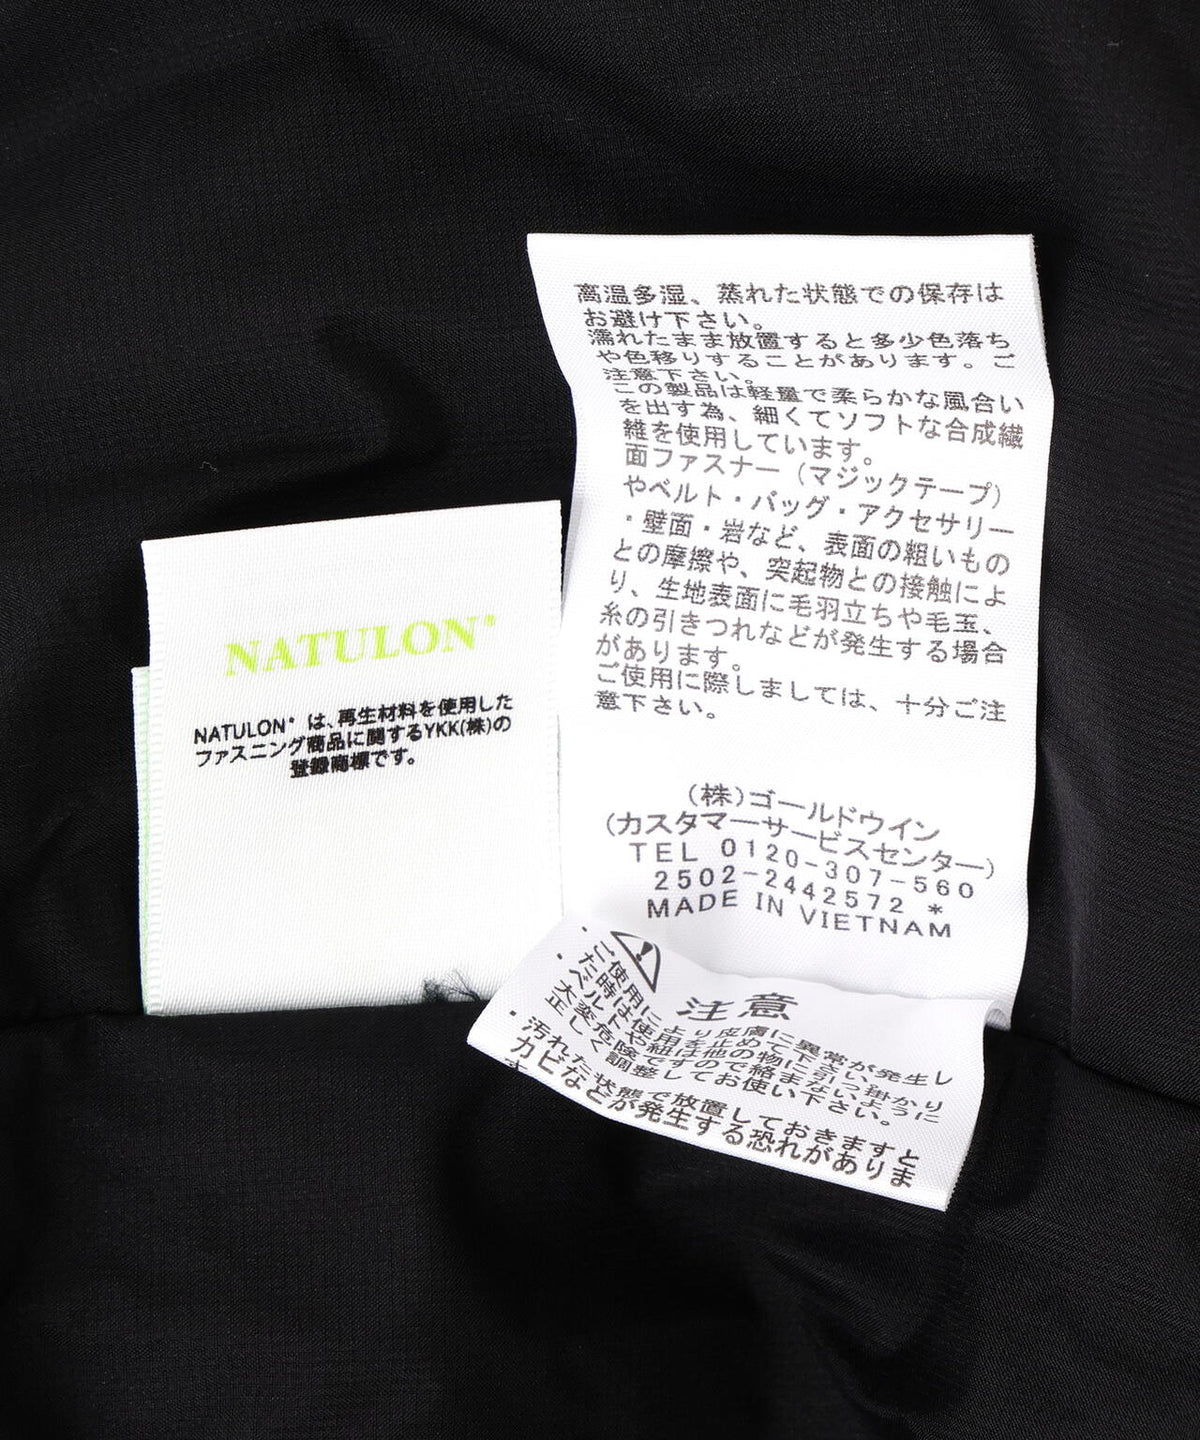 NATULON®
NATULON® は、再生材料を使用した
ファスニング商品に関するYKK(株)の
登録商標です。
高温多湿、蒸れた状態での保存は
お避け下さい。
濡れたまま放置すると多少色落ち
や色移りすることがあります。ご
注意下さい。
この製品は軽量で柔らかな風合い
を出す為、細くてソフトな合成繊
維を使用しています。
面ファスナー（マジックテープ）
やベルト・バッグ・アクセサリー
・壁面・岩など、表面の粗いもの
との摩擦や、突起物との接触によ
り、生地表面に毛羽立ちや毛玉、
糸の引きつれなどが発生する場合
があります。
ご使用に際しましては、十分ご注
意下さい。
(株)ゴールドウイン
(カスタマーサービスセンター)
TEL 0120-307-560
2502-2442572 *
MADE IN VIETNAM
注意
・ご使用により皮膚に異常が発生し
た時は使用を止めて下さい。
・ベルトや紐は他の物に引っ掛かり
大変危険ですので絡まないように
正しく調整してお使い下さい。
・汚れた状態で放置しておきますと
カビなどが発生する恐れがありま